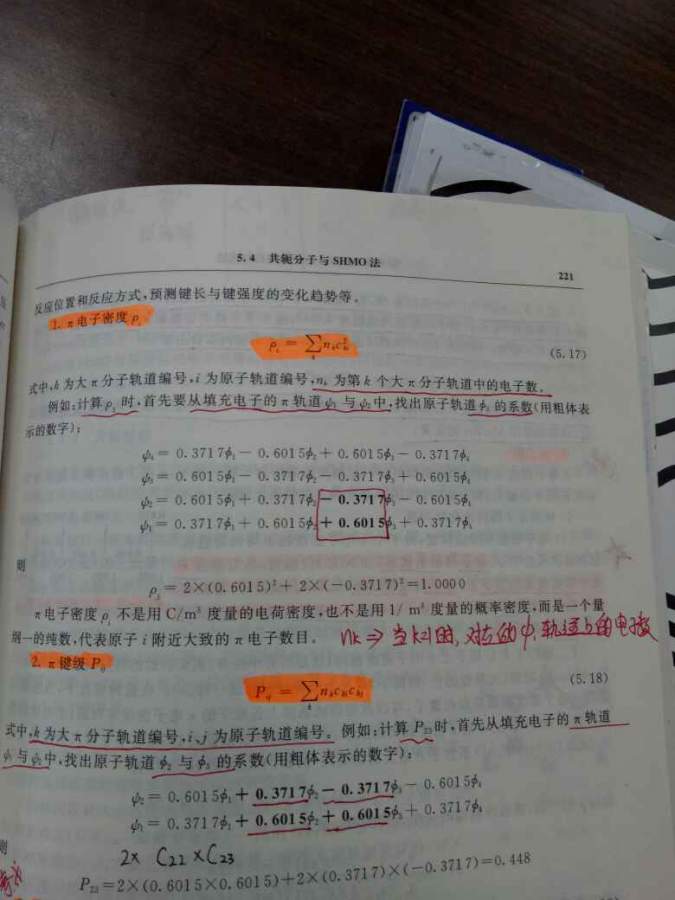 5.4 共轭分子与SHMO法
221
反应位置和反应方式,预测键长与键强度的变化趋势等。
1. π电子密度 ρᵢ
ρᵢ = ∑ₖ nₖc²ₖᵢ (5.17)
式中,k 为大π分子轨道编号,i 为原子轨道编号,nₖ 为第 k 个大π分子轨道中的电子数。
例如:计算 ρ₃ 时,首先要从填充电子的π轨道 ψ₁ 与 ψ₂ 中,找出原子轨道 ϕ₃ 的系数(用粗体表
示的数字):
ψ₄ = 0.3717ϕ₁ − 0.6015ϕ₂ + 0.6015ϕ₃ − 0.3717ϕ₄
ψ₃ = 0.6015ϕ₁ − 0.3717ϕ₂ − 0.3717ϕ₃ + 0.6015ϕ₄
ψ₂ = 0.6015ϕ₁ + 0.3717ϕ₂ − 0.3717ϕ₃ − 0.6015ϕ₄
ψ₁ = 0.3717ϕ₁ + 0.6015ϕ₂ + 0.6015ϕ₃ + 0.3717ϕ₄
则
ρ₃ = 2×(0.6015)² + 2×(−0.3717)² = 1.0000
π电子密度 ρᵢ 不是用 C/m³ 度量的电荷密度,也不是用 1/m³ 度量的概率密度,而是一个量
纲一的纯数,代表原子 i 附近大致的π电子数目。
nk ⇒ 当k=1时,对应的ψ轨道上的电子数
2. π键级 Pᵢⱼ
Pᵢⱼ = ∑ₖ nₖcₖᵢcₖⱼ (5.18)
式中,k 为大π分子轨道编号,i、j 为原子轨道编号。例如:计算 P₂₃ 时,首先从填充电子的π轨道
ψ₁ 与 ψ₂ 中,找出原子轨道 ϕ₂ 与 ϕ₃ 的系数(用粗体表示的数字):
ψ₂ = 0.6015ϕ₁ + 0.3717ϕ₂ − 0.3717ϕ₃ − 0.6015ϕ₄
ψ₁ = 0.3717ϕ₁ + 0.6015ϕ₂ + 0.6015ϕ₃ + 0.3717ϕ₄
则
2× C22 × C23
P₂₃ = 2×(0.6015×0.6015)+2×(0.3717)×(−0.3717)=0.448